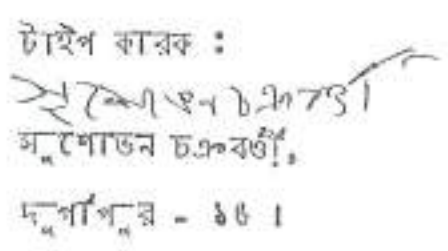 টাইপ কারক :
সুশোভন চক্রবর্তী
সুশোভন চক্রবর্তী,
দুর্গাপুর - ১৬ ।